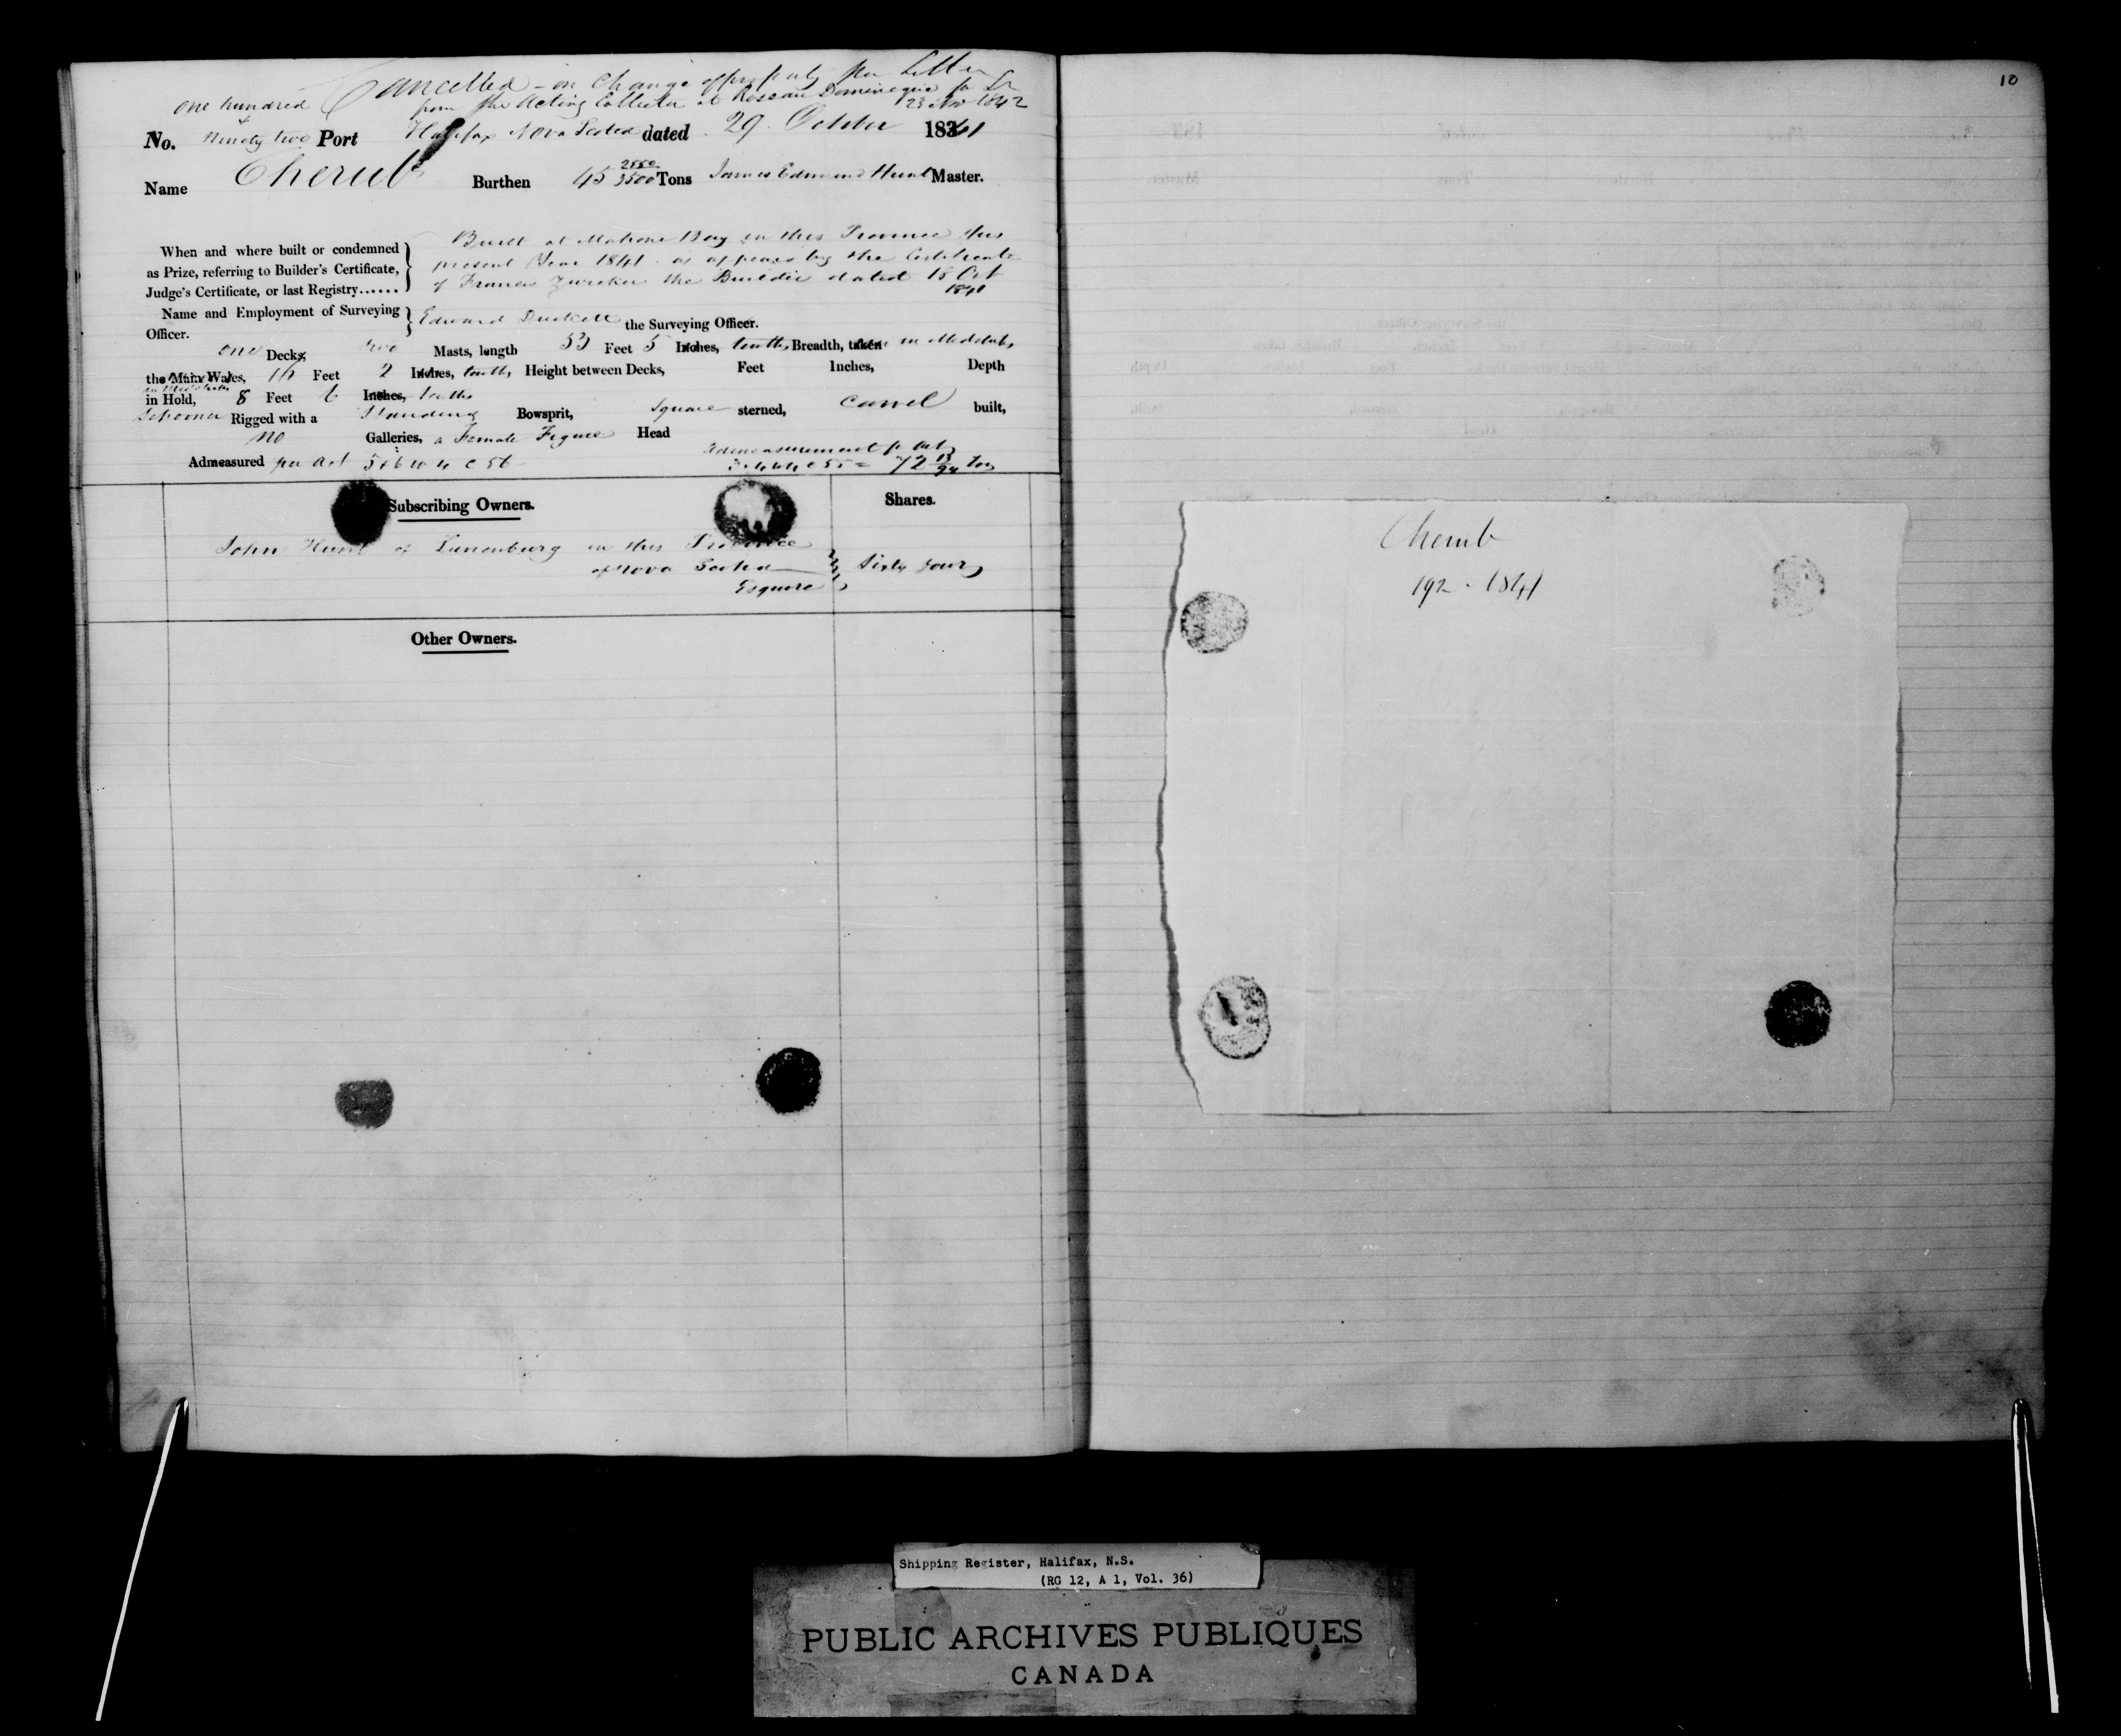 Cancelled - on Change of property per Letter
from the Acting Collector at Roseau Dominique
23 Nov 1842
one hundred
& Ninety two
No. Port Halifax Nova Scotia dated 29 October 1841
Name Cherub Burthen 45 2550/3500 Tons James Edmund Hunt Master.
When and where built or condemned as Prize, referring to Builder's Certificate, Judge's Certificate, or last Registry......
Built at Mahone Bay in this Province this
present Year 1841 as appears by the Certificate
of Francis Zwicker the Builder dated 18 Oct
1841
Name and Employment of Surveying Officer.
Edward Duckett the Surveying Officer.
one Decks, two Masts, length 53 Feet 5 Inches, tenths, Breadth, taken in Midships
the Main Wales, 16 Feet 2 Inches, tenths, Height between Decks, Feet Inches, Depth
in Midships
in Hold, 8 Feet 6 Inches, tenths
Schooner Rigged with a Standing Bowsprit, Square sterned, Carvel built,
no Galleries, a Female Figure Head
Admeasured per Act 5 & 6 W 4 C 56
Admeasurement p Act
3 & 4 W 4 C 55 = 72 13/94 Tons
Subscribing Owners. Shares.
John Hunt of Lunenburg in this Province
of Nova Scotia Sixty four
Esquire
Other Owners.
10
Cherub
192 - 1841
Shipping Register, Halifax, N.S.
(RG 12, A 1, Vol. 36)
PUBLIC ARCHIVES PUBLIQUES
CANADA